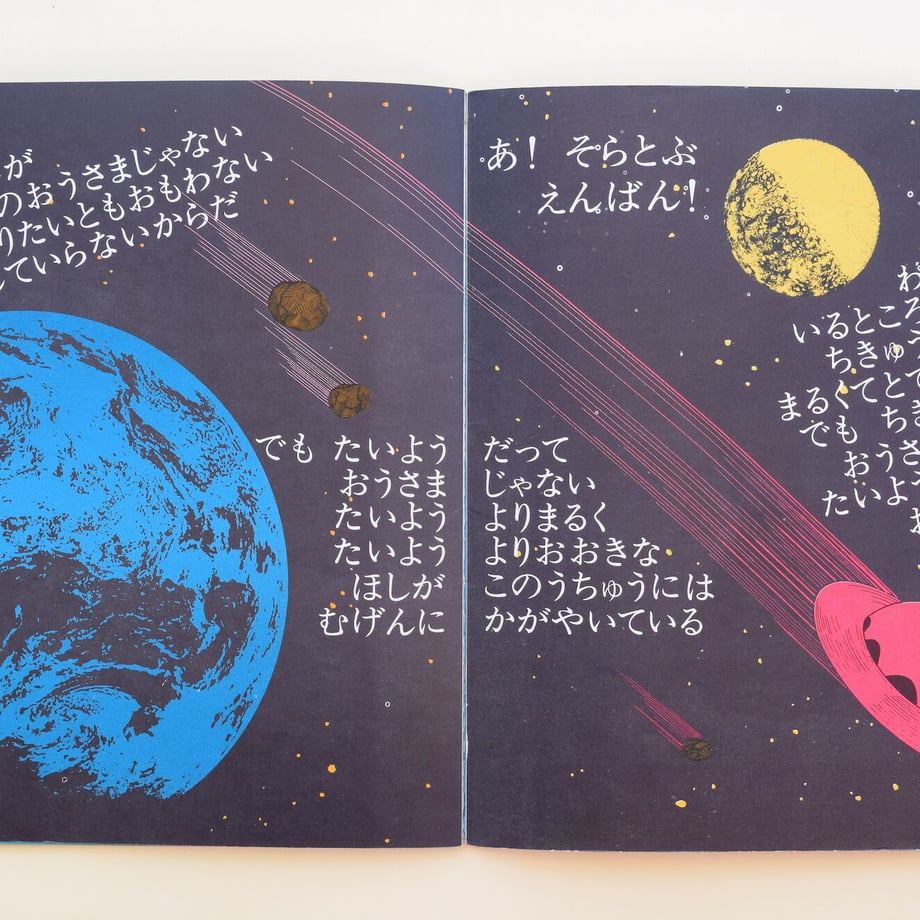 が
のおうさまじゃない
りたいともおもわない
ていらないからだ
あ! そらとぶ
えんばん!
わ
いるところ
ちきゅう
まるくて とて
でも ち
おうさ
たいよう
でも たいよう だって
おうさま じゃない
たいよう よりまるく
たいよう よりおおきな
ほしが このうちゅうには
むげんに かがやいている